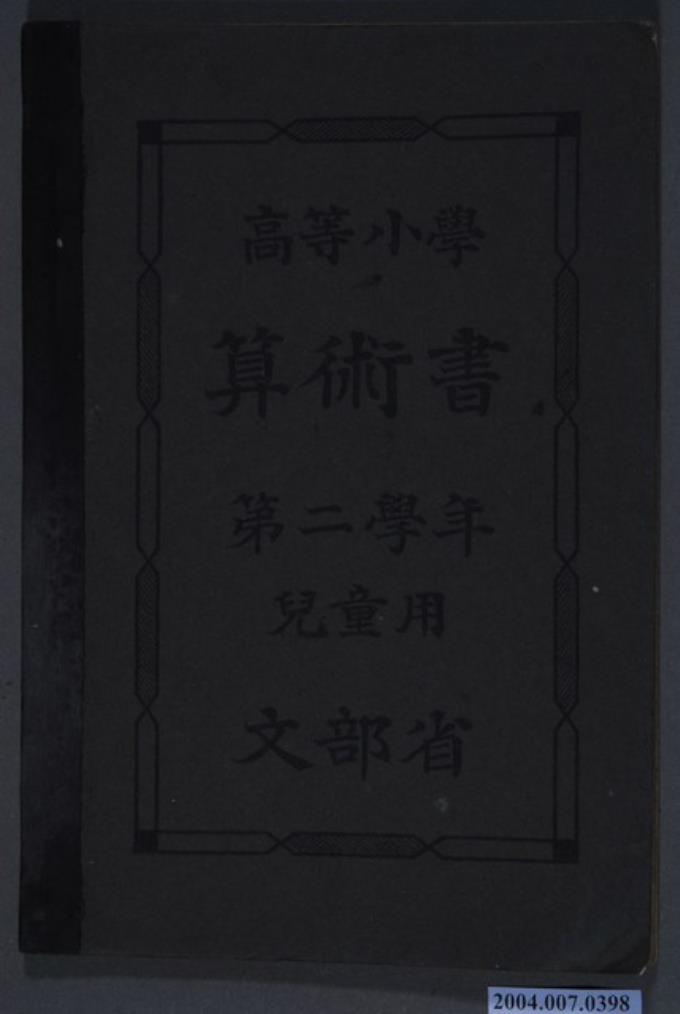 高等小學
算術書
第二學年
兒童用
文部省
2004.007.0398